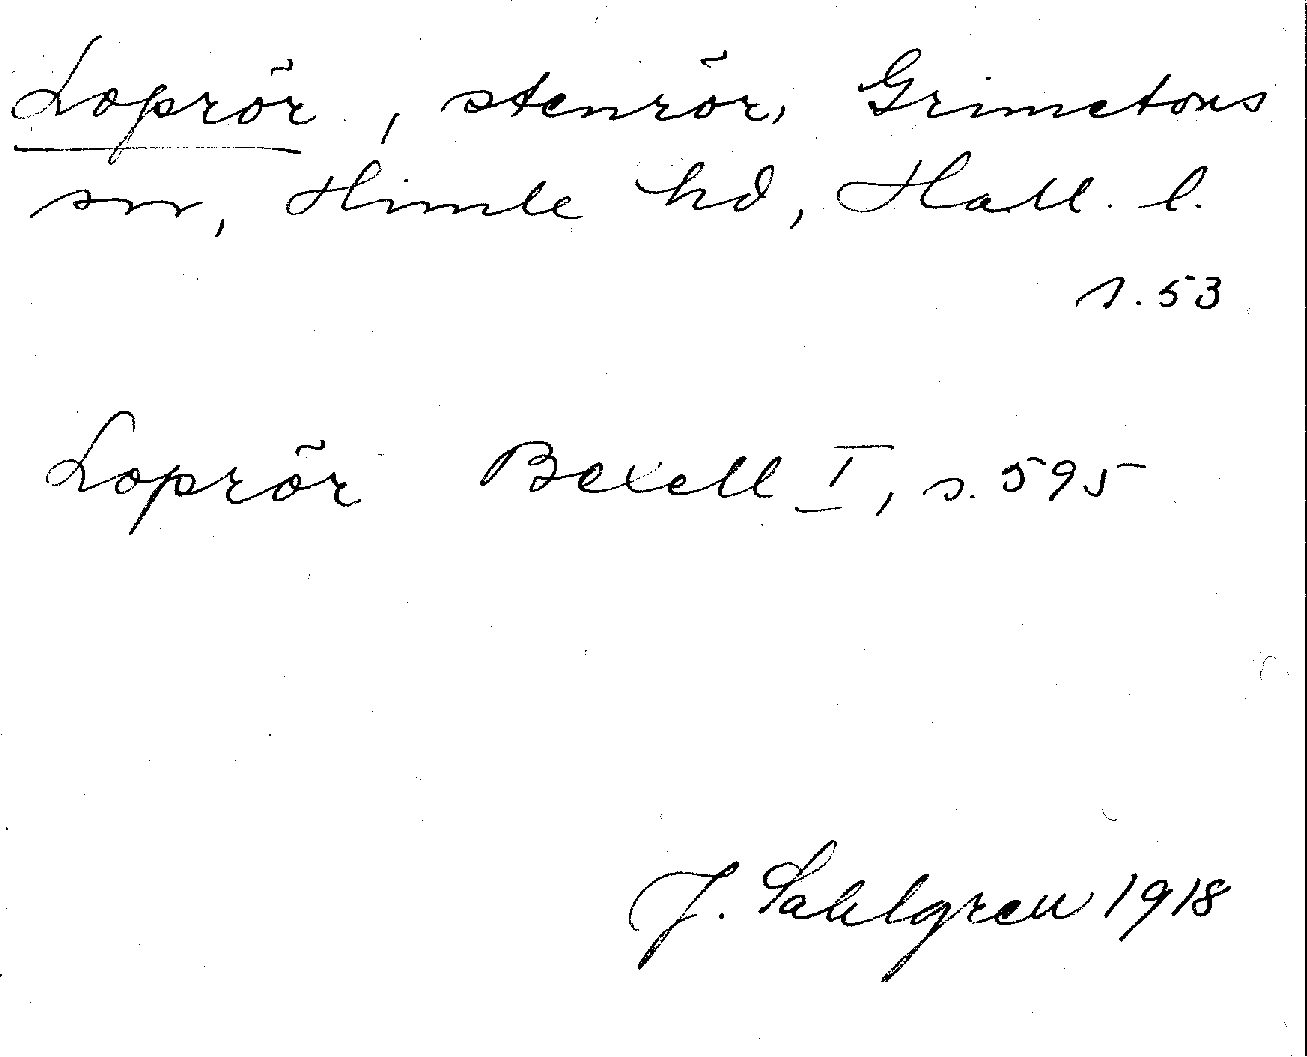 Loprör, stenrör, Grimetons
sn, Himle hd, Hall. l.
s. 53
Loprör Bexell I, s. 595
J. Sahlgren 1918